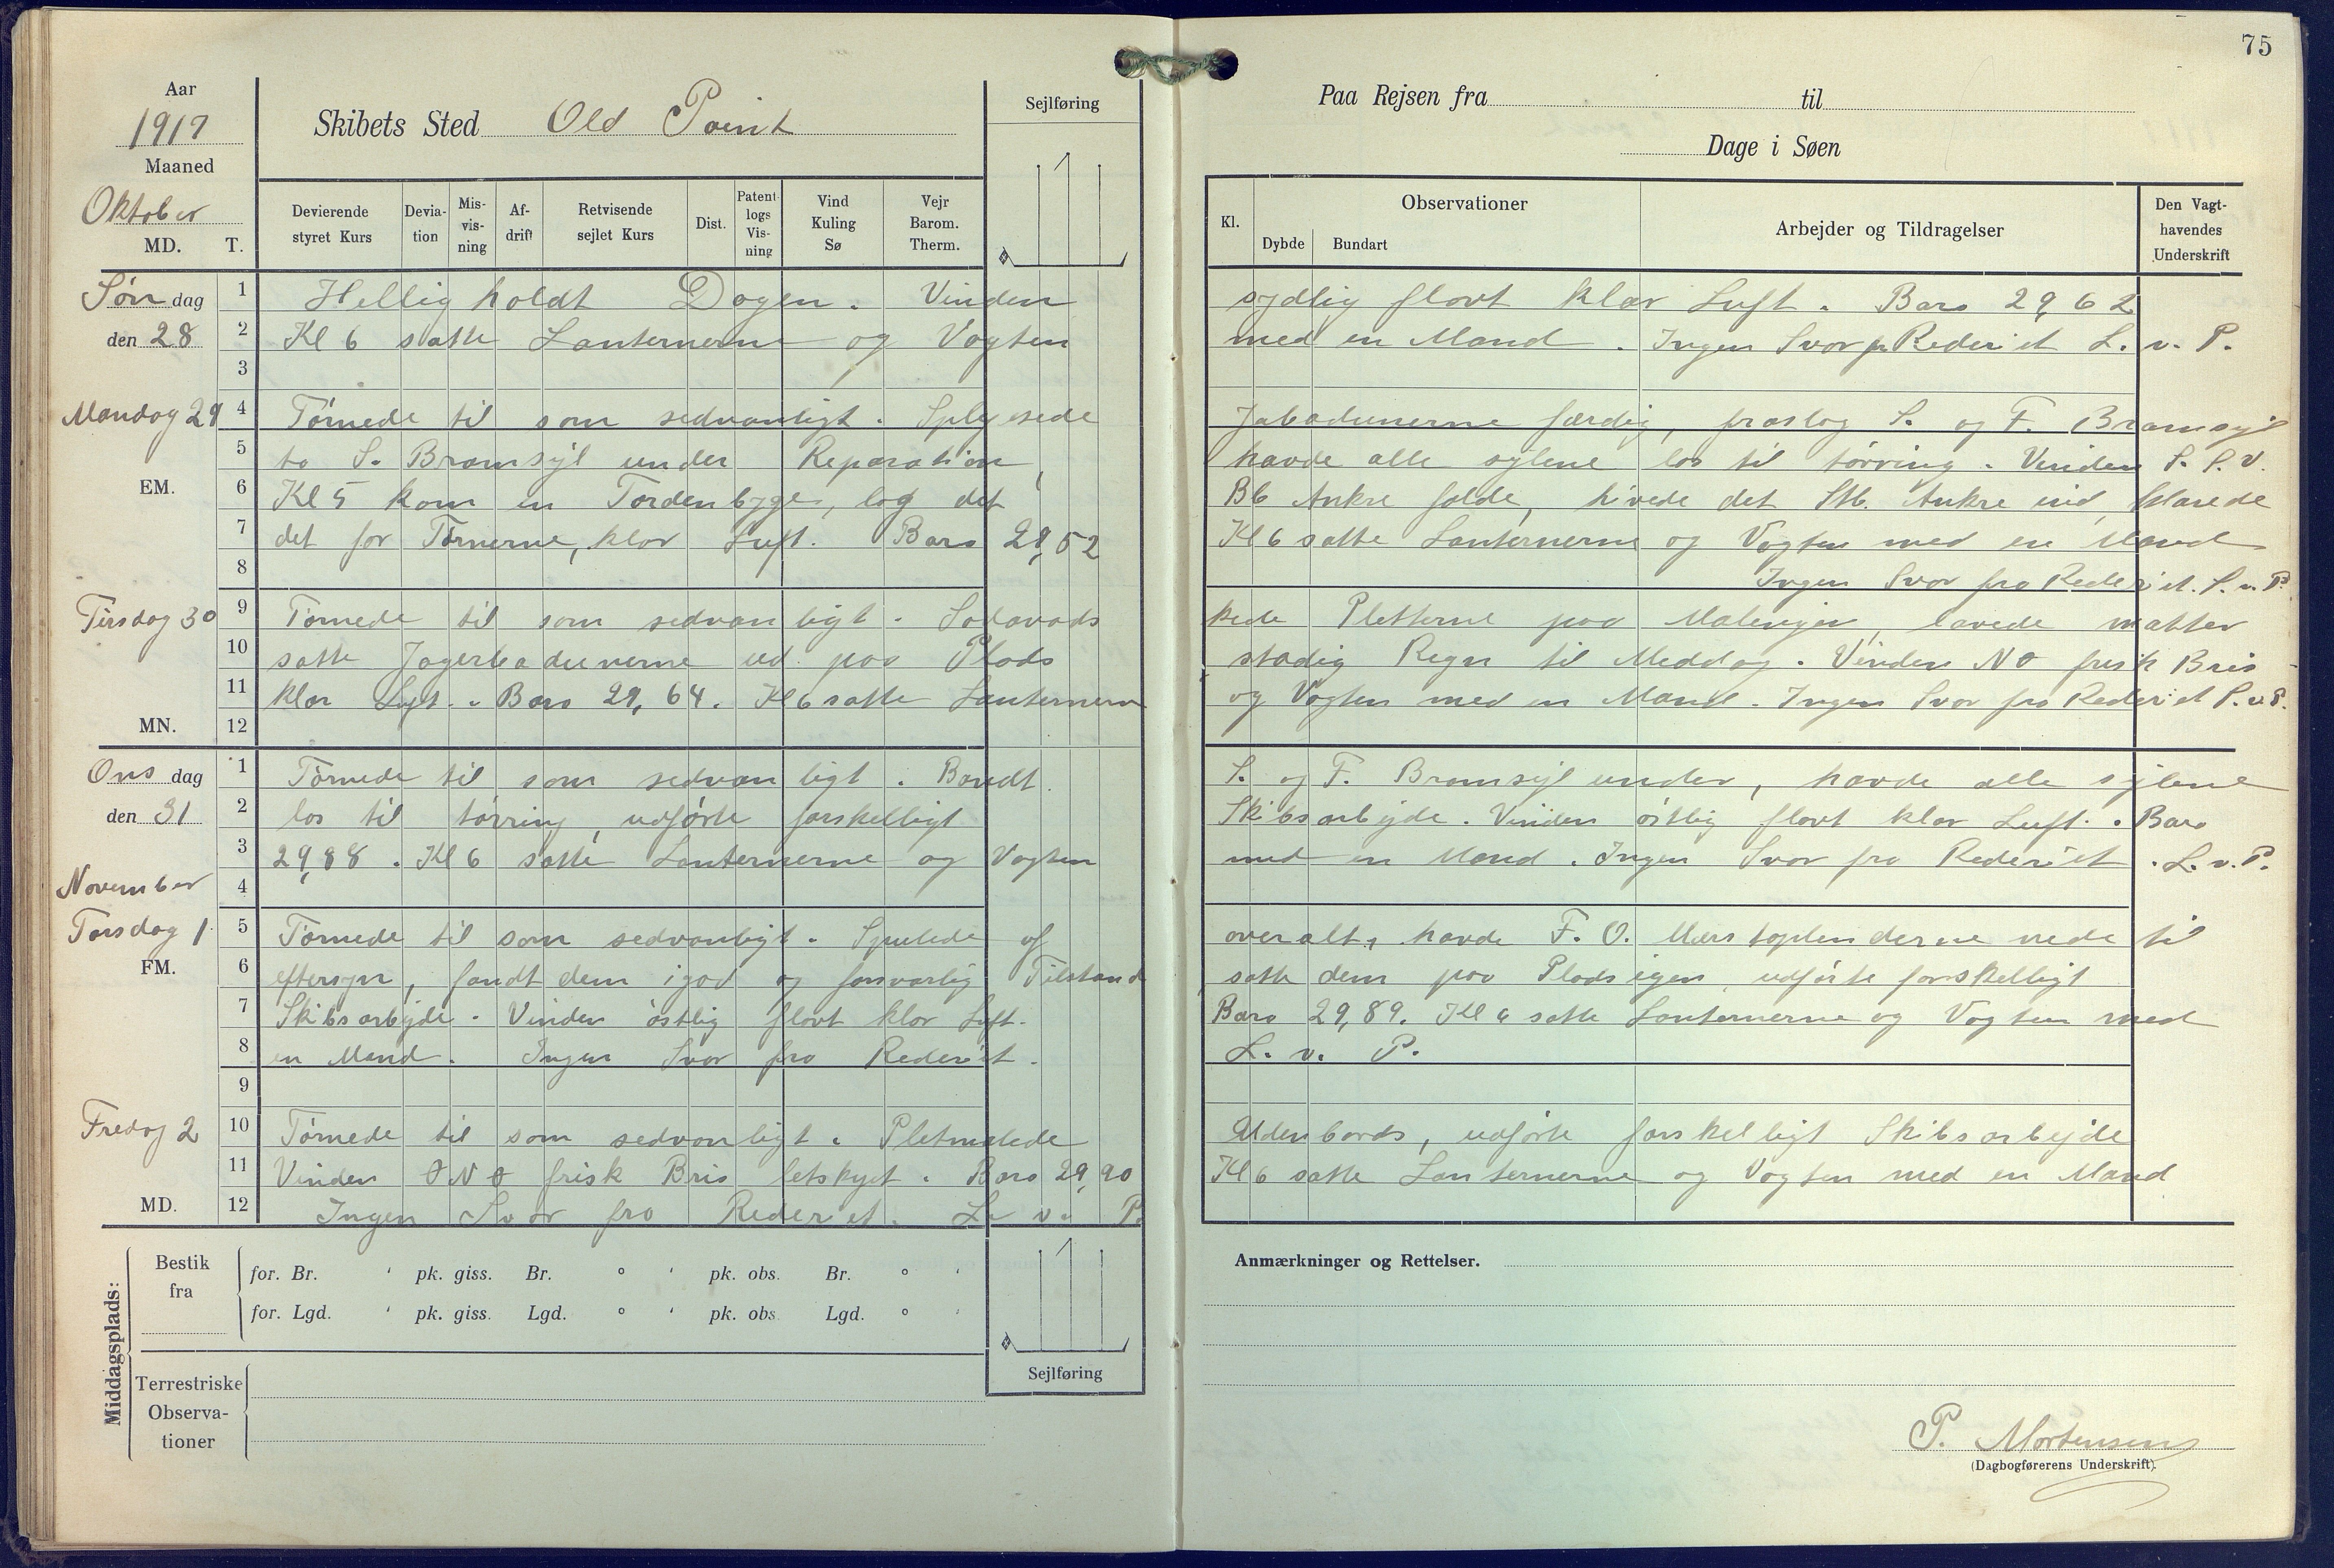 75
Aar
1917
Maaned
Oktober
MD. T.
Skibets Sted Old Point
Sejlføring
Paa Rejsen fra til
Dage i Søen
Devierende styret Kurs
Deviation
Misvisning
Afdrift
Retvisende sejlet Kurs
Dist.
Patent logs Visning
Vind Kuling Sø
Vejr Barom. Therm.
Kl.
Observationer
Dybde Bundart
Arbejder og Tildragelser
Den Vagthavendes Underskrift
Søndag den 28
1 Hellig holdt Dagen. Vinden sydlig flovt klar Luft. Baro 29,62
2 Kl 6 satte Lanternerne og Vagten med en Mand. Ingen Svar Rederiet L. v. P.
3
Mandag 29
4 Tørnede til som sedvanligt. Splejsede Jabadunerne færdig, fraslog S. og F. Bramsejl
5 to S. Bramsejl under Reparation, havde alle sejlene los til tørring. Vinden S.S.V.
EM.
6 Kl 5 kom en Tordenbyge, log det Bb Ankre folde, hivede det Stb. Ankre ind, klarede
7 det for Tørnerne, klar Luft. Baro 29,52 Kl 6 satte Lanternerne og Vagten med en Mand
8 Ingen Svar fra Rederiet. L. v. P.
Tirsdag 30
9 Tørnede til som sedvanligt. Sodavaskede Pletterne paa Malingen, lavede matter
10 satte Jagerbadunerne ud paa Plads stadig Regn til Meddag. Vinden NØ frisk Bris
11 klar Luft. Baro 29,64. Kl 6 satte Lanternerne og Vagten med en Mand. Ingen Svar fra Rederiet L. v. P.
MN. 12
Onsdag den 31
1 Tørnede til som sedvanligt. Bandt S. og F. Bramsejl under, havde alle sejlene
2 los til tørring, udførte forskelligt Skibsarbejde. Vinden østlig flovt klar Luft. Baro
3 29,88. Kl 6 satte Lanternerne og Vagten med en Mand. Ingen Svar fra Rederiet. L. v. P.
November
4
Torsdag 1
5 Tørnede til som sedvanligt. Spulede af overalt, havde F. O. Merstoplenderne nede til
FM.
6 eftersyn, fandt dem i god og forsvarlig Tilstand satte dem paa Plads igen, udførte forskelligt
7 Skibsarbejde. Vinden østlig flovt klar Luft. Baro 29,89. Kl 6 satte Lanternerne og Vagten med
8 en Mand. Ingen Svar fra Rederiet. L. v. P.
9
Fredag 2
10 Tørnede til som sedvanligt. Pletmalede Udenbords, udførte forskelligt Skibsarbejde
11 Vinden ØNØ frisk Bris letskyet. Baro 29,90 Kl 6 satte Lanternerne og Vagten med en Mand
MD. 12 Ingen Svar fra Rederiet. L. v. P.
Middagsplads:
Bestik fra
for. Br. ' pk. giss. Br. ° ' pk. obs. Br. ° '
for. Lgd. ' pk. giss. Lgd. ° ' pk. obs. Lgd. ° '
Terrestriske Observationer
Sejlføring
Anmærkninger og Rettelser.
P. Mortensen
(Dagbogførerens Underskrift).